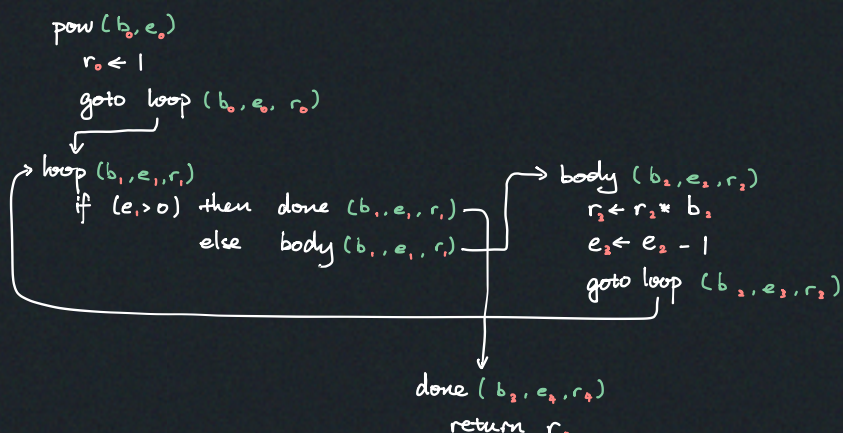 pow (b₀, e₀)
r₀ ← 1
goto loop (b₀, e₀, r₀)
loop (b₁, e₁, r₁)
if (e₁>0) then done (b₁, e₁, r₁)
else body (b₁, e₁, r₁)
body (b₂, e₂, r₂)
r₃ ← r₂ * b₂
e₃ ← e₂ - 1
goto loop (b₂, e₃, r₃)
done (b₃, e₄, r₄)
return r